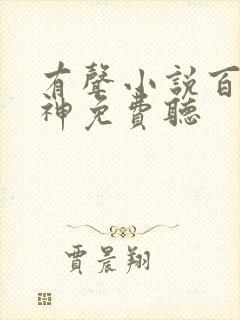 有聲小説百
神免費聽
賈晨翔